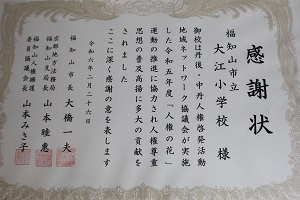 感謝状
福知山市立
大江小学校 様
御校は丹後・中丹人権啓発活動
地域ネットワーク協議会が実施
した令和五年度「人権の花」
運動の推進に協力され人権尊重
思想の普及高揚に多大の貢献を
されました
ここに深く感謝の意を表します
令和六年二月二十六日
福知山市長 大橋一夫
京都地方法務局
福知山支局長 山本睦恵
福知山人権擁護
委員協議会長 山本みさ子